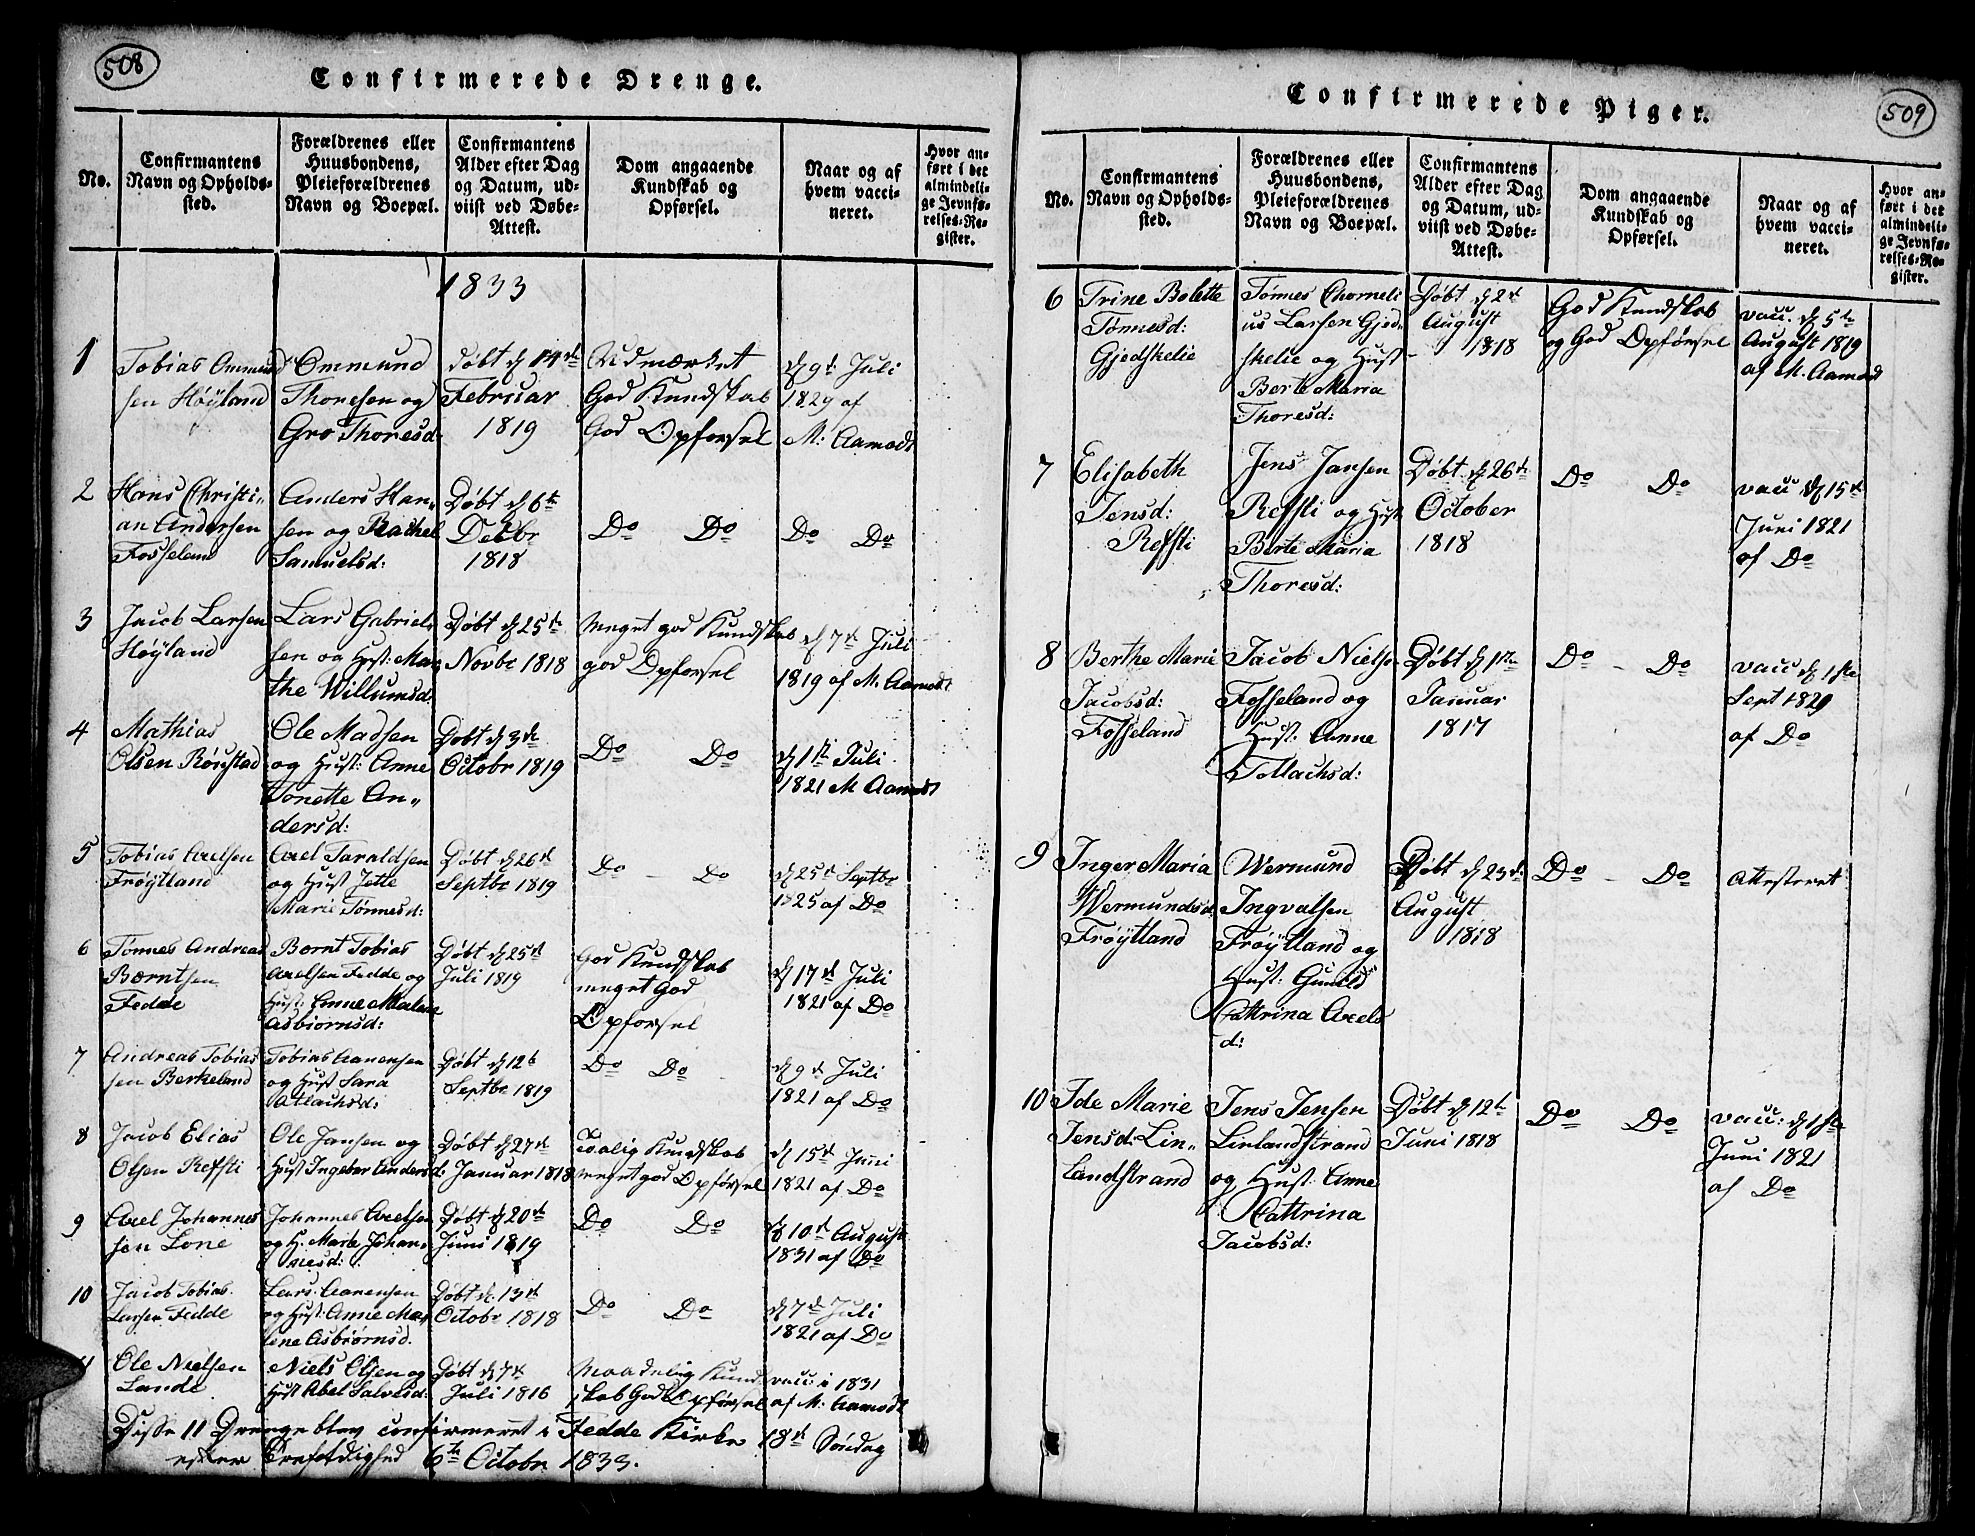 508
Confirmerede Drenge.
No.
Confirmantens
Navn og Opholds-
sted.
Forældrenes eller
Huusbondens,
Pleieforældrenes
Navn og Boepæl.
Confirmantens
Alder efter Dag
og Datum, ud-
viist ved Døbe-
Attest.
Dom angaaende
Kundskab og
Opførsel.
Naar og af
hvem vacci-
neret.
Hvor an-
ført i det
almindeli-
ge Jevnfø-
relses-Re-
gister.
1833
1
Tobias Ommund
sen Høyland
Ommund
Thoresen og
Gro Thoresd:
døbt d 14de
Februar
1819
Udmærket
God Kundskab
God Opførsel
d 9d: Juli
1829 af
M: Aamodt
2
Hans Christi„
an Andersen
Fosseland
Anders Han„
sen og Rachel
Samuelsd:
Døbt d 6te
Decbr
1818
Do Do
Do Do
3
Jacob Larsen
Høyland
Lars Gabriels
sen og Hust: Mar
the Willumsd
Døbt d 25de
Novbr 1818
meget god Kundskab
god Opførsel
d 7d Juli
1819 af M. Aamodt
4
Mathias
Olsen Røiistad
Ole Madsen
og Hust: Anne
Tonette An„
dersd:
Døbt d 3de
Octobr 1819
Do Do
d 1ste Juli
1821 M Aamodt
5
Tobias Axelsen
Frøytland
Axel Taraldsen
og Hust Jette
Marie Tønnesd:
Døbt d 26de
Septbr 1819
Do - Do
d 25d Septbr
1825 af Do
6
Tønnes Andreas
Bærntsen
Fedde
Bærnt Tobias
Axelsen Fedde og
Hust: Anne Malene
Asbiørnsd:
Døbt d 25de
Juli 1819
God Kundskab
meget God
Opførsel
d 17d Juli
1821 af Do
7
Andreas Tobias
sen Berkeland
Tobias Aanensen
og Hust Sara
Atlachsd:
Døbt d 12t
Septbr 1819
Do Do
d 9d Juli
1821 af Do
8
Jacob Elias
Olsen Refsti
Ole Jansen og
Hust Ingebor Andersd:
Døbt d 27de
Januar 1818
Taalig Kundskab
meget god Opførsel
d 15d Juni
1821 af Do
9
Axel Johannes
sen Lone
Johannes Axelsen
og H. Marte Johan„
nesd:
Døbt d 20de
Juni 1819
Do Do
d 10d August
1831 af Do
10
Jacob Tobias
Larsen Fedde
Lars Aanensen
og Hust: Anne Ma
lene Asbiørnsd.
Døbt d. 13de
Octobr 1818
Do Do
d 7d Juli
1821 af Do
11
Ole Nielsen
Lande
Niels Olsen og
Hust Abel Salvesd:
Døbt d 7de
Juli 1816
Maadelig Kund
skab God Opførsel
vacc i 1831
af M. Aamodt
Disse 11 Drenge blev confirmeret i Fedde Kirke 18d Søndag
efter Trefoldighed 6te Octobr 1833.
509
Confirmerede Piger.
No.
Confirmantens
Navn og Opholds-
sted.
Forældrenes eller
Huusbondens,
Pleieforældrenes
Navn og Boepæl.
Confirmantens
Alder efter Dag
og Datum, ud-
viist ved Døbe-
Attest.
Dom angaaende
Kundskab og
Opførsel.
Naar og af
hvem vacci-
neret.
Hvor an-
ført i det
almindeli-
ge Jevnfø-
relses-Re-
gister.
6
Trine Bolette
Tønnesd:
Gjedskelie
Tønnes Chorneli
us Larsen Gjed„
skelie og Hust
Berte Maria
Thoresd:
Døbt d 2d
August
1818
God Kundskab
og God Opførsel
vacc: d 5te
August 1819
af M. Aamodt
7
Elisabeth
Jensd:
Refsti
Jens Jansen
Refsti og Hust
Berte Maria
Thoresd:
Døbt: d 26de
October
1818
Do Do
vacc d 15d
Juni 1821
af Do
8
Berthe Marie
Jacobsd:
Fosseland
Jacob Nielse
Fosseland og
Hust: Anne
Tollachsd:
Døbt d 1ste
Januar
1817
Do - Do
vacc d 1ste
Sept 1829
af Do
9
Inger Maria
Wermundsd
Frøytland
Wermund
Ingvalsen
Frøytland og
Hust: Gunild
Cattrina Axels
d:
Døbt d 23d:
August
1818
Do - Do
Attesteret
10
Ide Marie
Jensd: Lin„
landstrand
Jens Jensen
Linlandstrand
og Hust: Anne
Cattrina
Jacobsd:
Døbt d 12te
Juni 1818
Do Do
vacc: d 1ste
Juni 1821
af Do